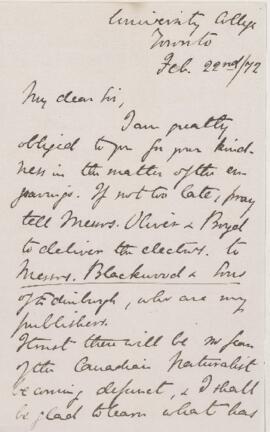 University College
Toronto
Feb. 22nd/72
My dear Sir,
I am greatly
obliged to you for your kind-
ness in the matter of the en-
gravings. If not too late, pray
tell Messrs. Oliver & Boyd
to deliver the electros. to
Messrs. Blackwood & Sons
of Edinburgh, who are my
publishers.
I trust there will be no fear
of the Canadian Naturalist
becoming defunct, & I shall
be glad to learn what has